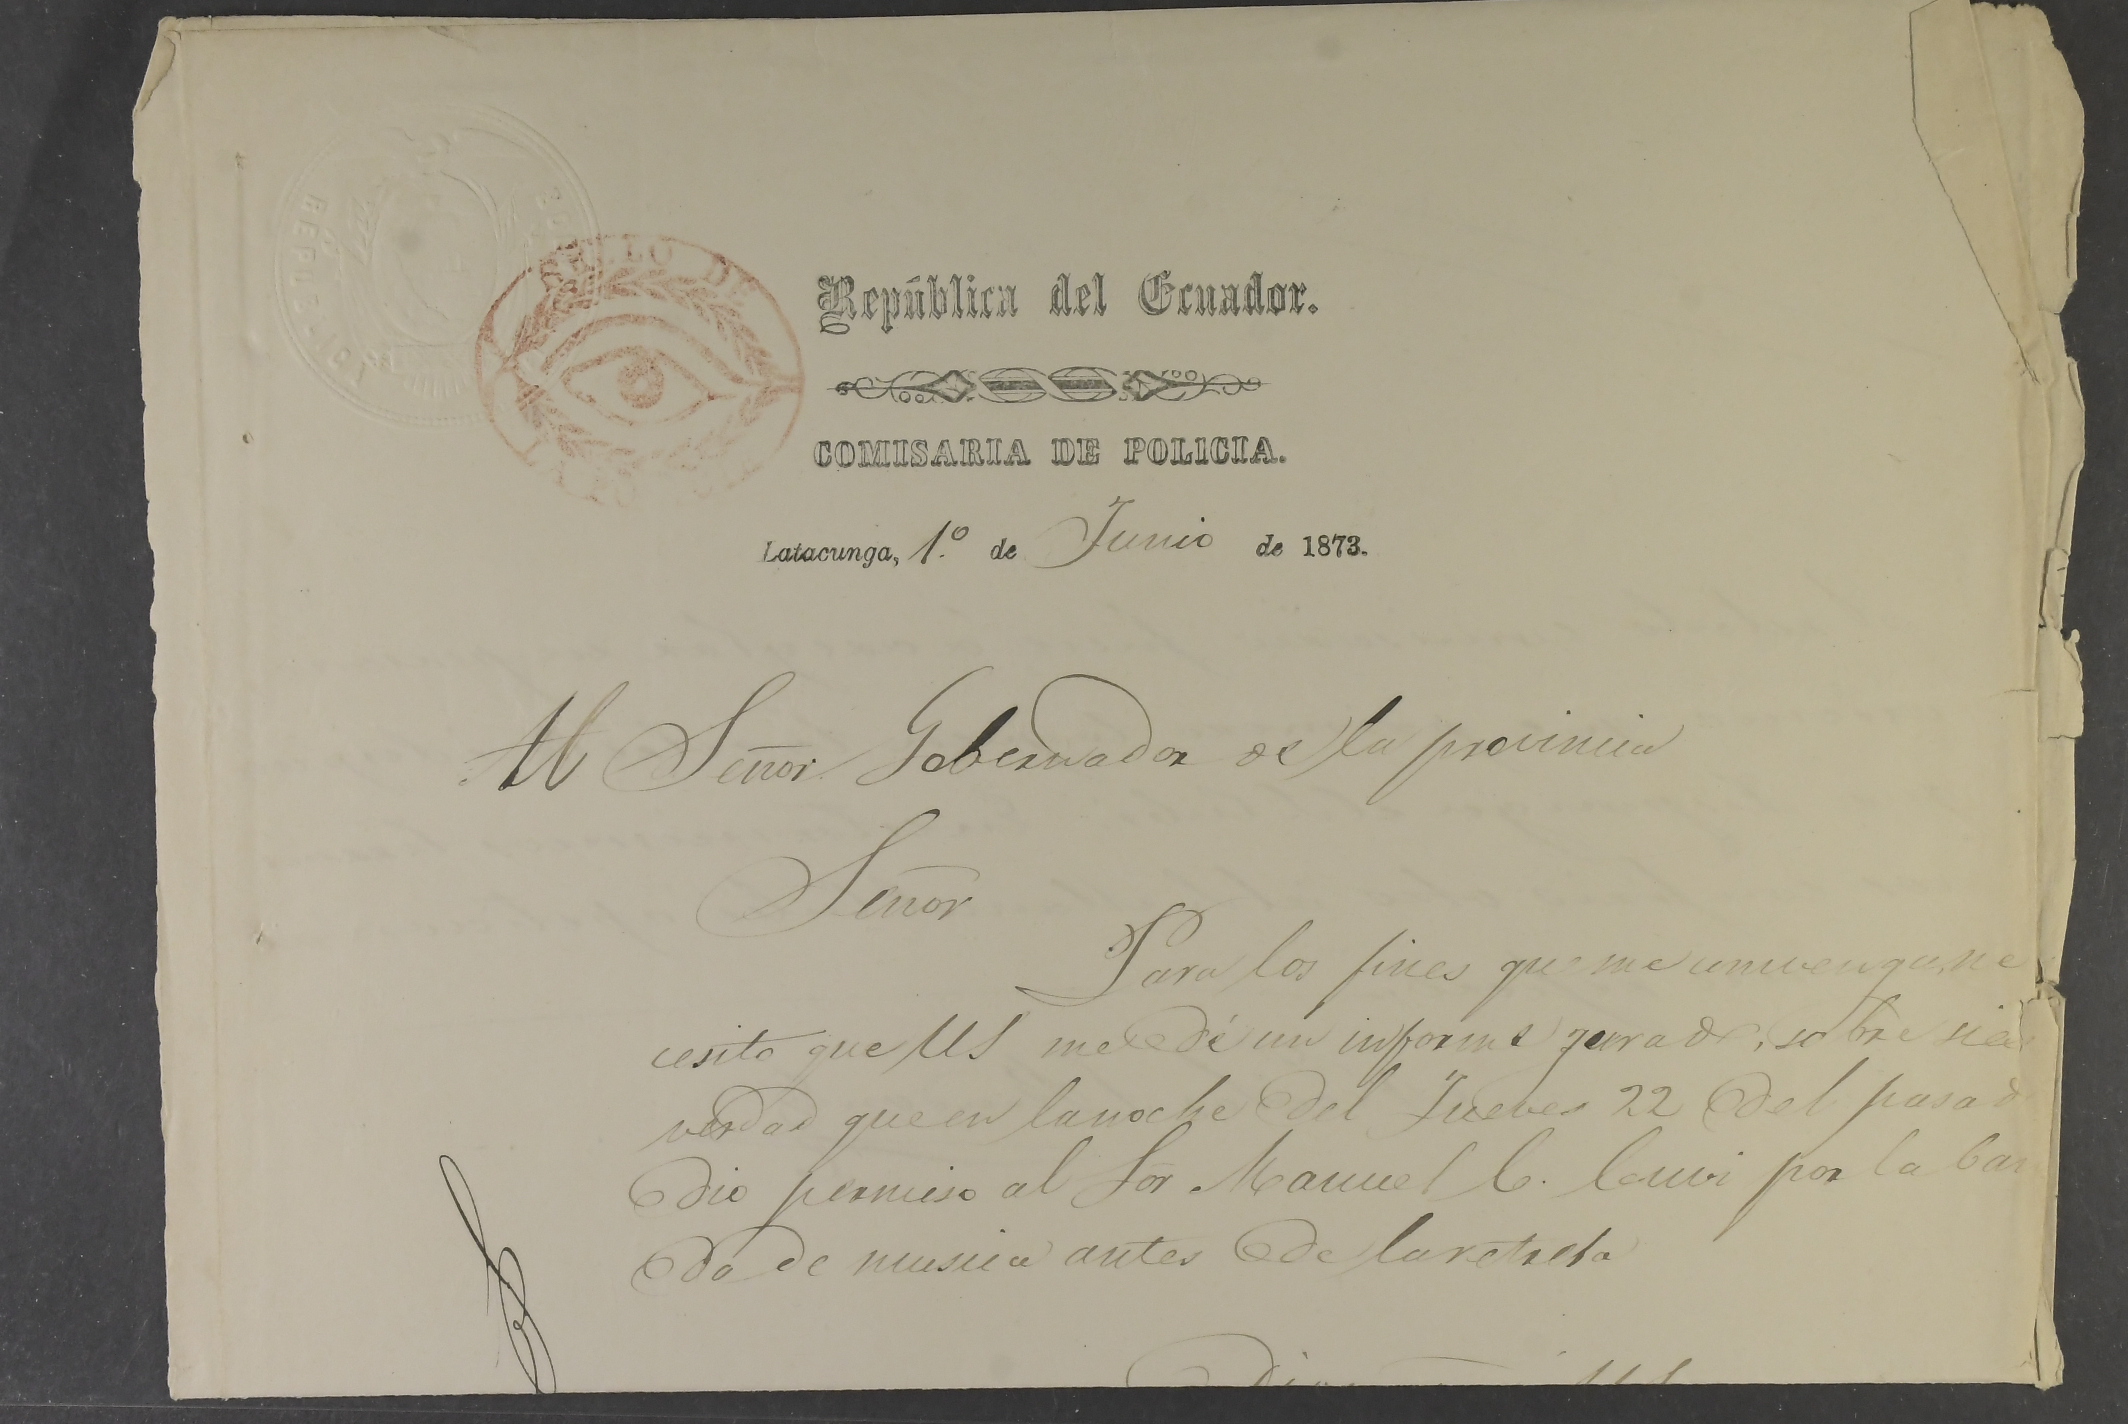 REPUBLICA
SELLO DE
República del Ecuador.
COMISARIA DE POLICIA.
Latacunga, 1.º de Junio de 1873.
Al Señor Gobernador de la provincia
Señor
Para los fines que me convenga, ne
cesito que US me dé un informe jurado, sobre si es
verdad que en la noche del Jueves 22 del pasado
dio permiso al Sor Manuel C. por la ban
da de musica antes de la retreta
Dios US